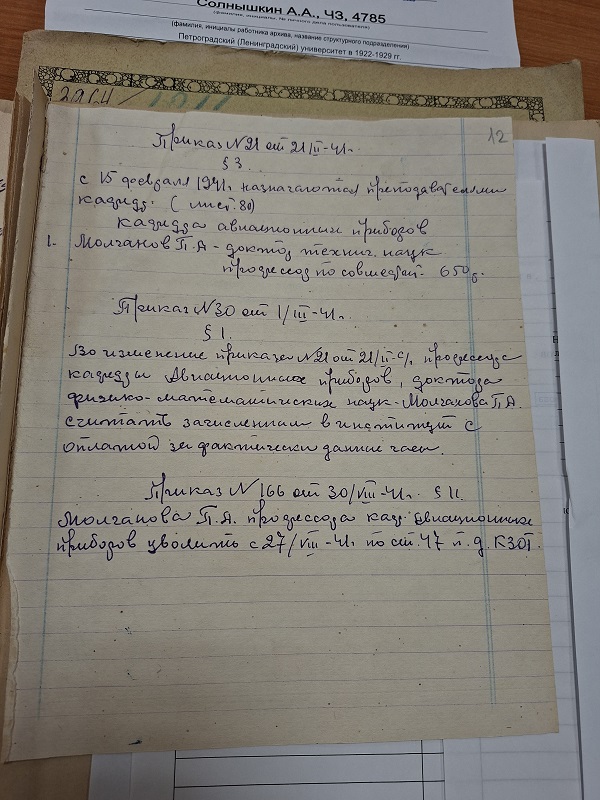 Солнышкин А.А., ЧЗ, 4785
(фамилия, инициалы работника архива, название структурного подразделения)
Петроградский (Ленинградский) университет в 1922-1929 гг.
12
Приказ N 21 от 21/II-41г.
§ 3.
с 15 февраля 1941г. назначаются преподавателями
кафедр. (лист. 80)
кафедра авиационных приборов
1. Молчанов П.А - доктор технич. наук
профессор по совместит. 650 р.
Приказ N 30 от 1/III-41г.
§ 1.
Во изменение приказа N 21 от 21/II-с/г. профессора
кафедры Авиационных приборов, доктора
физико-математических наук - Молчанова П.А.
считать зачисленным в институт с
оплатой за фактически данные часы.
Приказ N 166 от 30/VIII-41г. § II.
Молчанова П.А. профессора каф. Авиационных
приборов уволить с 27/VIII-41г. по ст. 47 п. д. КЗОТ.